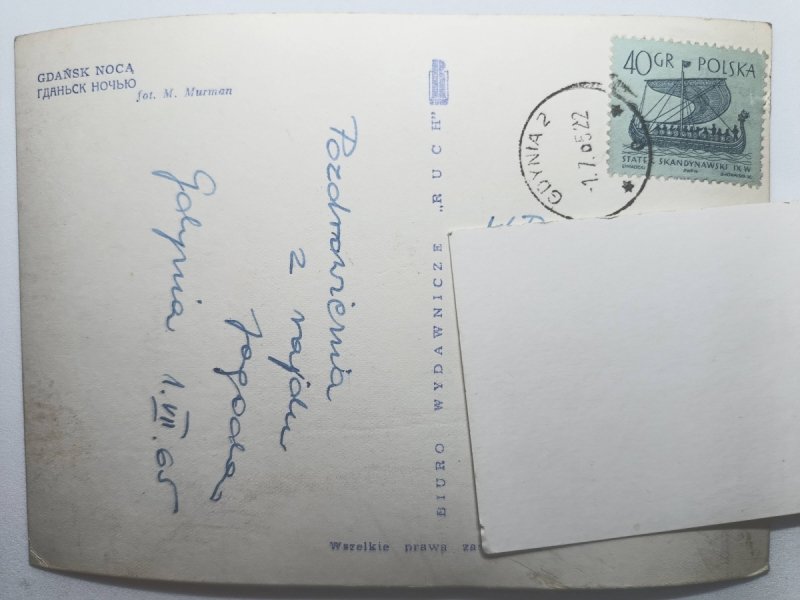 GDAŃSK NOCĄ
ГДАНЬСК НОЧЬЮ
fot. M. Murman
Pozdrowienia
z rajdu
Jagoda
Gdynia 1.VII.65
BIURO WYDAWNICZE „RUCH"
Wszelkie prawa
GDYNIA 2
-1.7.65.22
40GR POLSKA
STATEK SKANDYNAWSKI IX W